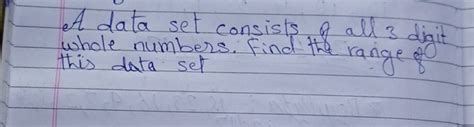 A data set consists of all 3 digit
whole numbers. Find the range of
this data set